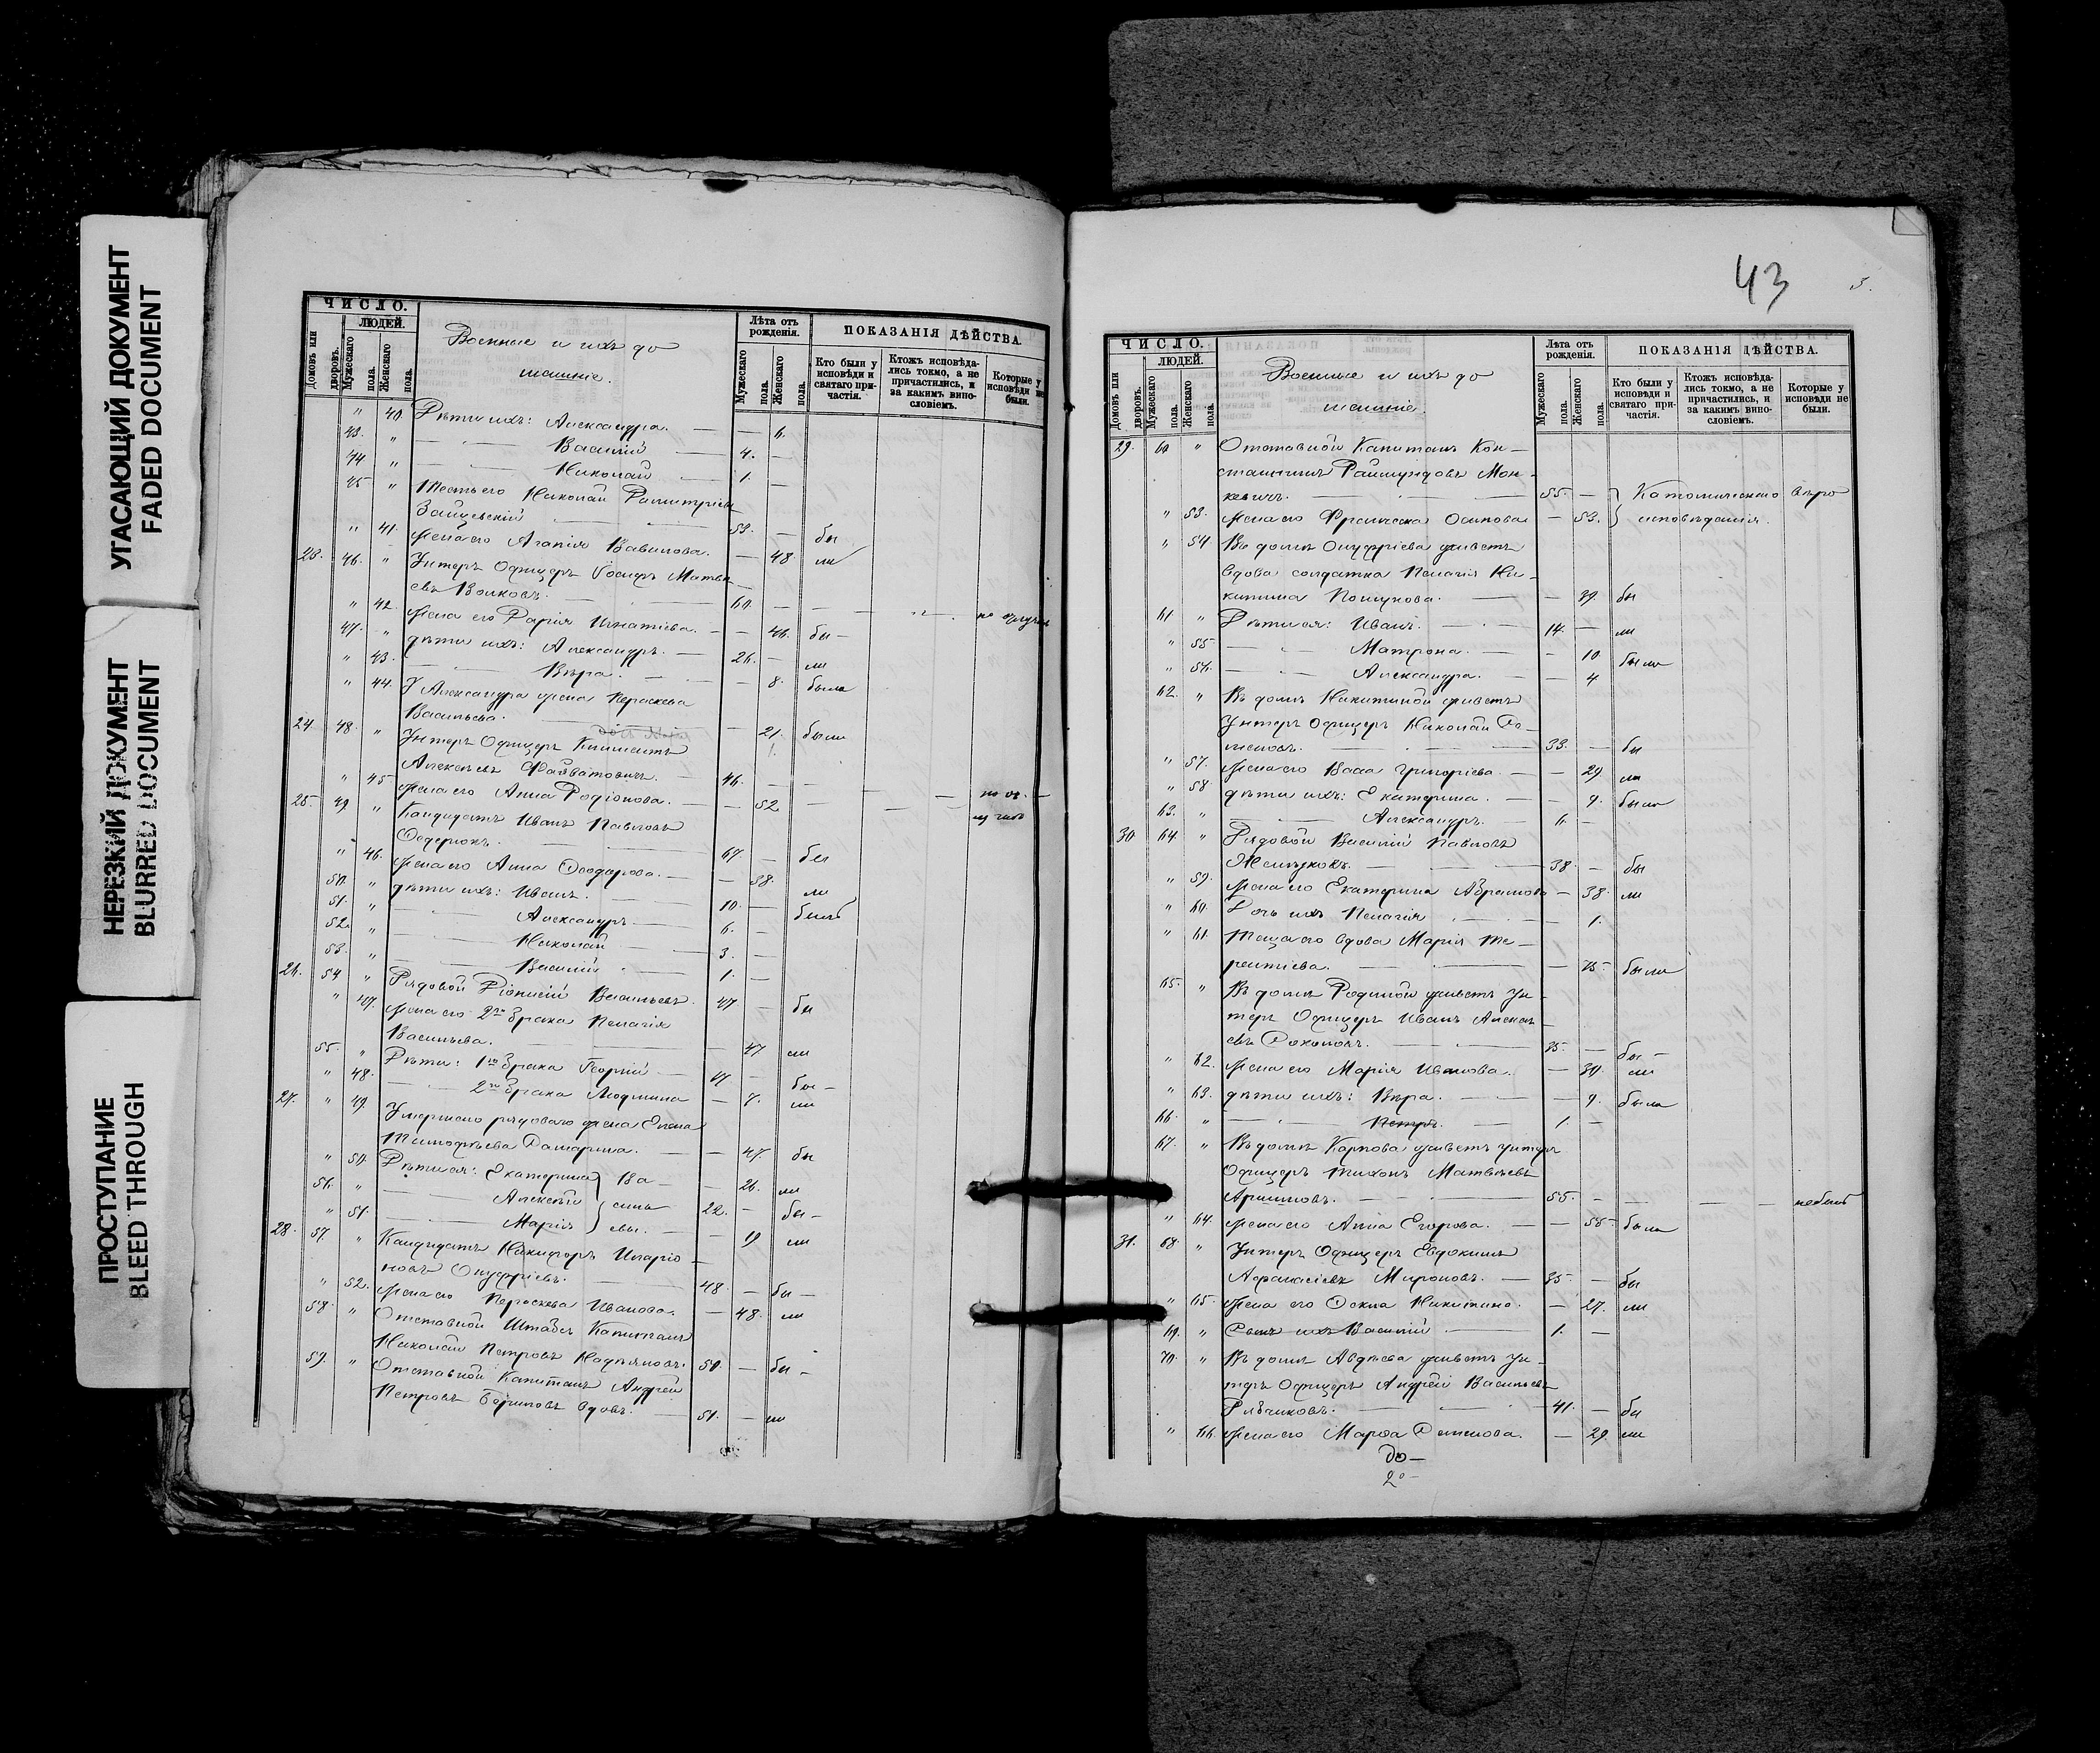 УГАСАЮЩИЙ ДОКУМЕНТ
FADED DOCUMENT
НЕРЕЗКИЙ ДОКУМЕНТ
BLURRED DOCUMENT
ПРОСТУПАНИЕ
BLEED THROUGH
ЧИСЛО.
ЛЮДЕЙ.
Домовъ или дворовъ.
Мужескаго пола.
Женскаго пола.
Военные и ихъ до
машніе.
Лѣта отъ рожденія.
Мужескаго пола.
Женскаго пола.
ПОКАЗАНІЯ ДѢЙСТВА.
Кто были у исповѣди и святаго причастія.
Ктожъ исповѣдались токмо, а не причастились, и за какимъ винословіемъ.
Которые у исповѣди не были.
" 40. Дѣти ихъ: Александра. — — 6.
43. " — Василій — 4. —
44 " — Николай — 1. —
45 " Тесть его Николай Димитріевъ
Зайцевскій — 53. — бы
" 41. Жена его Агапія Вавилова. — 48. ли
23. 46. " Унтеръ Офицеръ Іосифъ Матвѣ
евъ Волковъ. — 60. —
" 42. Жена его Дарія Игнатіева. — — 46. бы —
47. " дѣти ихъ: Александръ. — 26. — ли
" 43. — Вѣра. — — 8. была
" 44. У Александра жена Параскева
Васильева. — 21. были
24 48. " Унтеръ Офицеръ Климентъ
Алексѣевъ — 46. —
" 45 Жена его Анна Родіонова. — — 52.
25. 49 " Кандидатъ Иванъ Павловъ
67. — бы
" 46. Жена его Анна Ѳеодорова. — — 38. ли
50. " дѣти ихъ: Иванъ. — 10. — былъ
51. " — Александръ — 6. —
52. " — Николай — 3. —
53. " — Василій — 1. —
26. 54 " Рядовой Діонисій Васильевъ. 47. — бы
" 47. Жена его 2го брака Пелагія
Васильева. — 47 ли
55. " Дѣти: 1го брака Георгій — 17 — бы —
" 48. — 2го брака Людмила — 7. ли
27. " 49. Умершаго рядоваго жена Елена
Тимофѣева — 47. бы
" 50. Дѣти ея: Екатерина } Ва — — 26. ли
56. " — Алексѣй } силь 22. — бы —
" 51. — Марія } евы. — 19 ли
28. 57. " Кандидатъ Никифоръ Иларіо
новъ Онуфріевъ. — 48. — бы —
" 52. Жена его Параскева Иванова. — 48. ли
58. " Отставной Штабсъ Капитанъ
Николай Петровъ 50. — бы —
59. " Отставной Капитанъ Андрей
Петровъ вдовъ. — 51. — ли
43
5.
ЧИСЛО.
ЛЮДЕЙ.
Домовъ или дворовъ.
Мужескаго пола.
Женскаго пола.
Военные и ихъ до
машніе.
Лѣта отъ рожденія.
Мужескаго пола.
Женскаго пола.
ПОКАЗАНІЯ ДѢЙСТВА.
Кто были у исповѣди и святаго причастія.
Ктожъ исповѣдались токмо, а не причастились, и за какимъ винословіемъ.
Которые у исповѣди не были.
29. 60 " Отставной Капитанъ Кон—
стантинъ Раймундовъ Мон—
кевичъ. — 55. — } Католическаго вѣро
" 53. Жена его Франческа Осипова — 53. } исповѣданія.
" 54 Въ домѣ Онуфріева живетъ
вдова солдатка Пелагія Ни—
китина — 39. бы
61 " Дѣти ея: Иванъ. — 14. — ли
" 55 — Матрона. — — 10. были
" 56. — Александра. — — 4
62. " Въ домѣ Никитиной живетъ
Унтеръ Офицеръ Николай
33. — бы
" 57. Жена его Васса Григоріева. — — 29. ли
" 58 дѣти ихъ: Екатерина. — — 9. была
63. " — Александръ. — 6. —
30. 64 " Рядовой Василій Павловъ
38. — бы
" 59. Жена его Екатерина Абрамова — 38. ли
" 60. Дочь ихъ Пелагія — 1.
" 61. Теща его вдова Марія Те—
рентіева. — — 75. была
65. " Въ домѣ Родиной живетъ Ун—
теръ Офицеръ Иванъ Алексѣ—
евъ 35. — бы —
" 62. Жена его Марія Иванова. — 30. ли
" 63. дѣти ихъ: Вѣра. — — 9. была
66. " — Петръ. — 1. —
67. " Въ домѣ Карпова живетъ унтеръ
Офицеръ Тихонъ Матвѣевъ
55. — небылъ
" 64. Жена его Анна Егорова. — — 55 была
31. 68. " Унтеръ Офицеръ Евдокимъ
Афанасіевъ Мироновъ. — 35. — бы
" 65. Жена его Ѳекла Никитина. — 27. ли
69. " Сынъ ихъ Василій — 1. —
70. " Въ домѣ Авдѣева живетъ Ун—
теръ Офицеръ Андрей Васильевъ
Рябчиковъ. — 41. — бы
" 66. Жена его Марѳа — 29. ли
до—
2о—